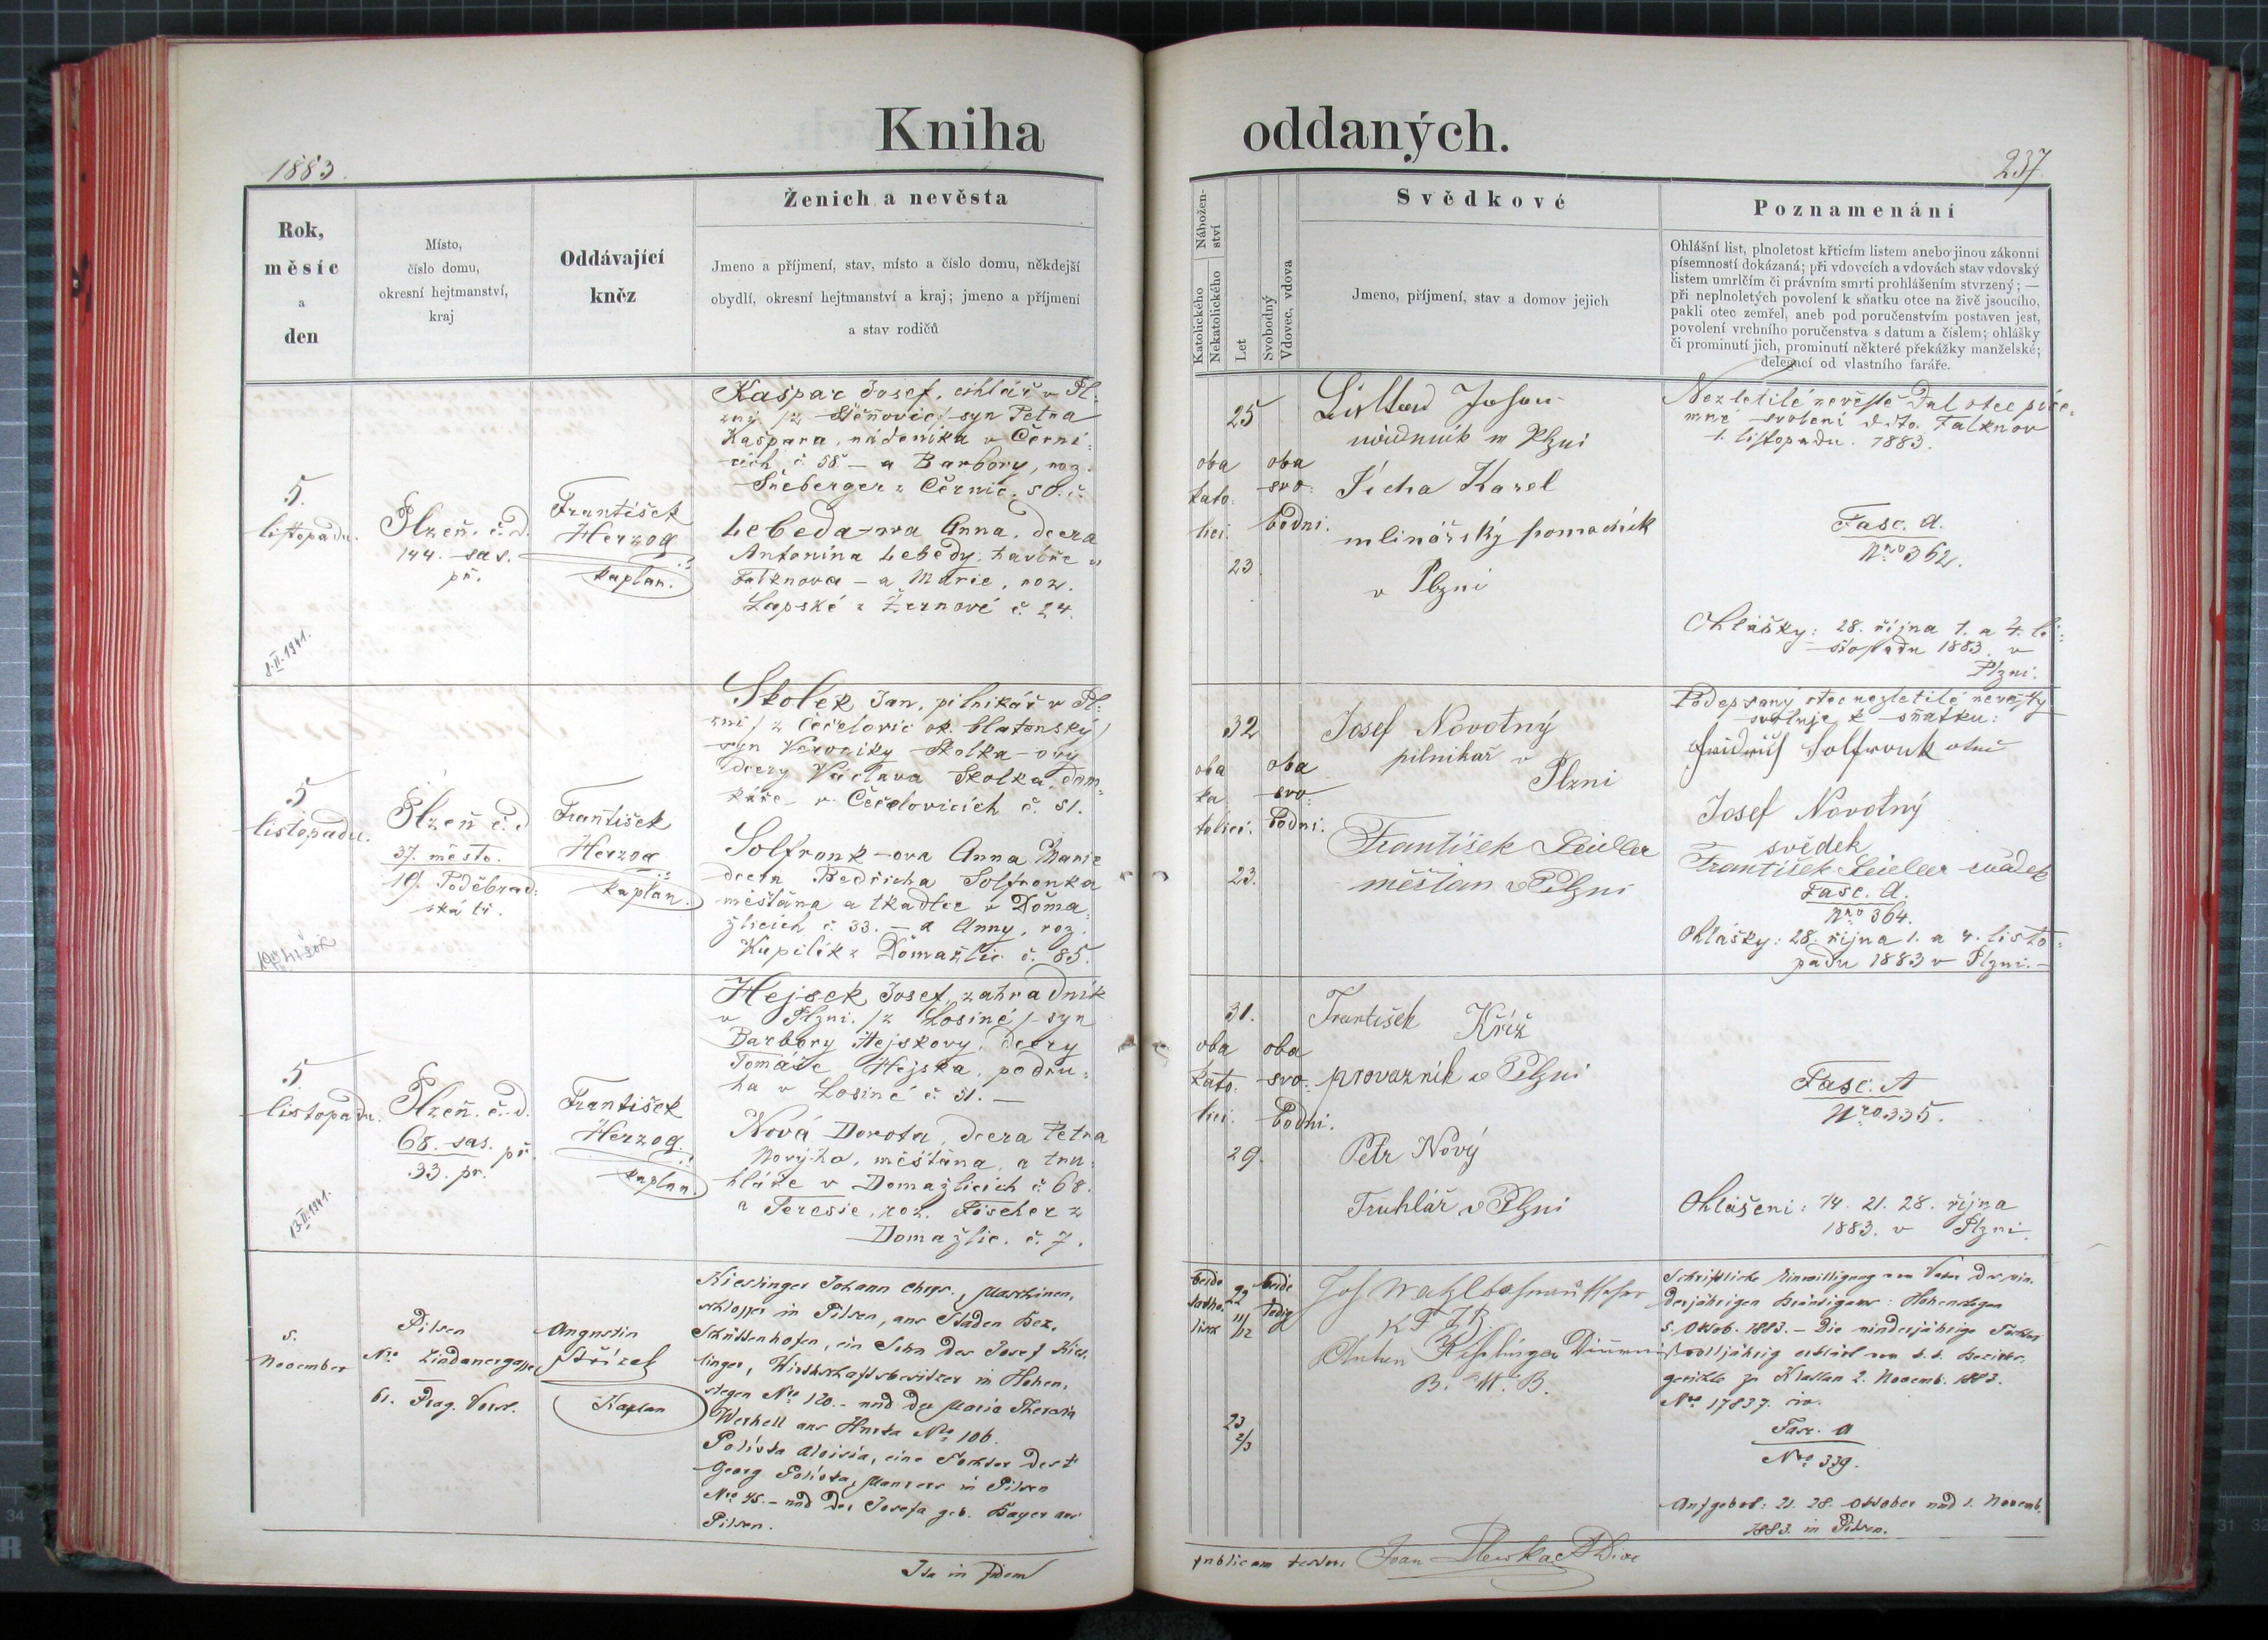 Kniha oddaných.
1883.
237
Rok,
měsíc
a
den
Místo,
číslo domu,
okresní hejtmanství,
kraj
Oddávající
kněz
Ženich a nevěsta
Jmeno a příjmení, stav, místo a číslo domu, někdejší
obydlí, okresní hejtmanství a kraj; jmeno a příjmení
a stav rodičů
Nábožen-
ství
Katolického
Nekatolického
Let
Svobodný
Vdovec, vdova
Svědkové
Jmeno, příjmení, stav a domov jejich
Poznamenání
Ohlášní list, plnoletost křticím listem anebo jinou zákonní
písemností dokázaná; při vdovcích a vdovách stav vdovský
listem umrlčím či právním smrti prohlášením stvrzený; —
při neplnoletých povolení k sňatku otce na živě jsoucího,
pakli otec zemřel, aneb pod poručenstvím postaven jest,
povolení vrchního poručenstva s datum a číslem; ohlášky
či prominutí jich, prominutí některé překážky manželské;
delegací od vlastního faráře.
5.
listopadu.
8.II.1941.
Plzeň. č. d.
144. sas.
př.
František
Herzog
kaplan.
Kašpar Josef, cihlář v Pl-
zni /z Štěňovic/ syn Petra
Kašpara, nádeníka v Černi-
cích č. 58. — a Barbory, roz.
Šneberger z Černic
Lebeda-ova Anna, dcera
Antonína Lebedy,
Falknova — a Marie, roz.
Lapské z Žernové č. 24.
25
oba
kato-
lici.
23
oba
svo-
bodni.
v Plzni
Jícha Karel
mlinářský pomocník
v Plzni
Nezletilé nevěstě dal otec píse-
mné svolení ddto. Falknov
1. listopadu. 1883.
Fasc. A.
Nro 362.
Ohlášky: 28. října 1. a 4. li-
stopadu 1883. v
Plzni.
5
listopadu.
Plzeň č. d
37. město.
19. Poděbrad-
ská tř.
František
Herzog
kaplan.
Skolek Jan, pilnikář v Pl-
zni / z Čečelovic ok. blatenský /
syn Veroniky Skolka-ovy
dcery Václava Skolka, dom-
káře v Čečelovicích č. 51.
Solfronk-ova Anna Marie
dcera Bedřicha Solfronka
měšťána a tkadlce v Doma-
žlicích č. 33. — a Anny, roz.
Kupilík z Domažlic č. 85.
32
oba
ka
tolici.
23.
oba
svo-
bodni.
Josef Novotný
pilnikař v
Plzni
František Leiller
měšťan v Plzni
Podepsaný otec nezletilé nevěsty
svoluje k sňatku:
Solfronk otec
Josef Novotný
svědek
František Leiller svědek
Fasc. A.
Nro 364.
Ohlášky: 28. října 1. a 4. listo-
padu 1883 v Plzni. —
5
listopadu.
13.II.1941.
Plzeň. č. d.
68. sas. př.
33. pr.
František
Herzog
kaplan.
Hejsek Josef, zahradník
v Plzni. /z Losiné/ syn
Barbory Hejskovy, dcery
Tomáše Hejska, podru-
ha v Losiné č. 51. —
Nová Dorota, dcera Petra
Nového, měšťána, a tru-
hláře v Domažlicích č. 68.
a Teresie, roz. Fischer z
Domažlic. č. 7.
31.
oba
kato-
lici.
29.
oba
svo-
bodni.
František Kříž
provazník v Plzni
Petr Nový
Truhlář v Plzni
Fasc. A
Nro 335.
Ohlášeni: 14. 21. 28. října
1883. v Plzni.
5.
November
Pilsen
Nro Lindauergasse
61. Prag. Vorst.
Augustin
Střízek
Kaplan
Kieslinger Johann Chrys., Maschinen-
schlosser in Pilsen, aus Staden Bez.
Schüttenhofen, ein Sohn des Josef Kies-
linger, Wirthschaftsbesitzer in Hohen-
stegen Nro 120. — und der Maria Theresia
aus Hurka Nro 106.
Polívka Aloisia, eine Tochter des †
Georg Polívka, Maurers in Pilsen
Nro 45. — und der Josefa geb. Bayer aus
Pilsen.
beide
katho-
lisch
22
11/12
23
2/3
beide
ledig
Anton Kieslinger
B. W. B.
Schriftliche Einwilligung vom Vater des min-
derjährigen Bräutigams: Hohenstegen
5. Oktob. 1883. — Die minderjährige Tochter
volljährig erklärt vom k. k. Bezirks-
gerichte zu Klattau 2. Novemb. 1883.
Nro 17837. civ.
Fasc. A
Nro 339.
Aufgebot: 21. 28. Oktober und 1. Novemb.
1883. in Pilsen.
Ita in fidem
publicam testor: